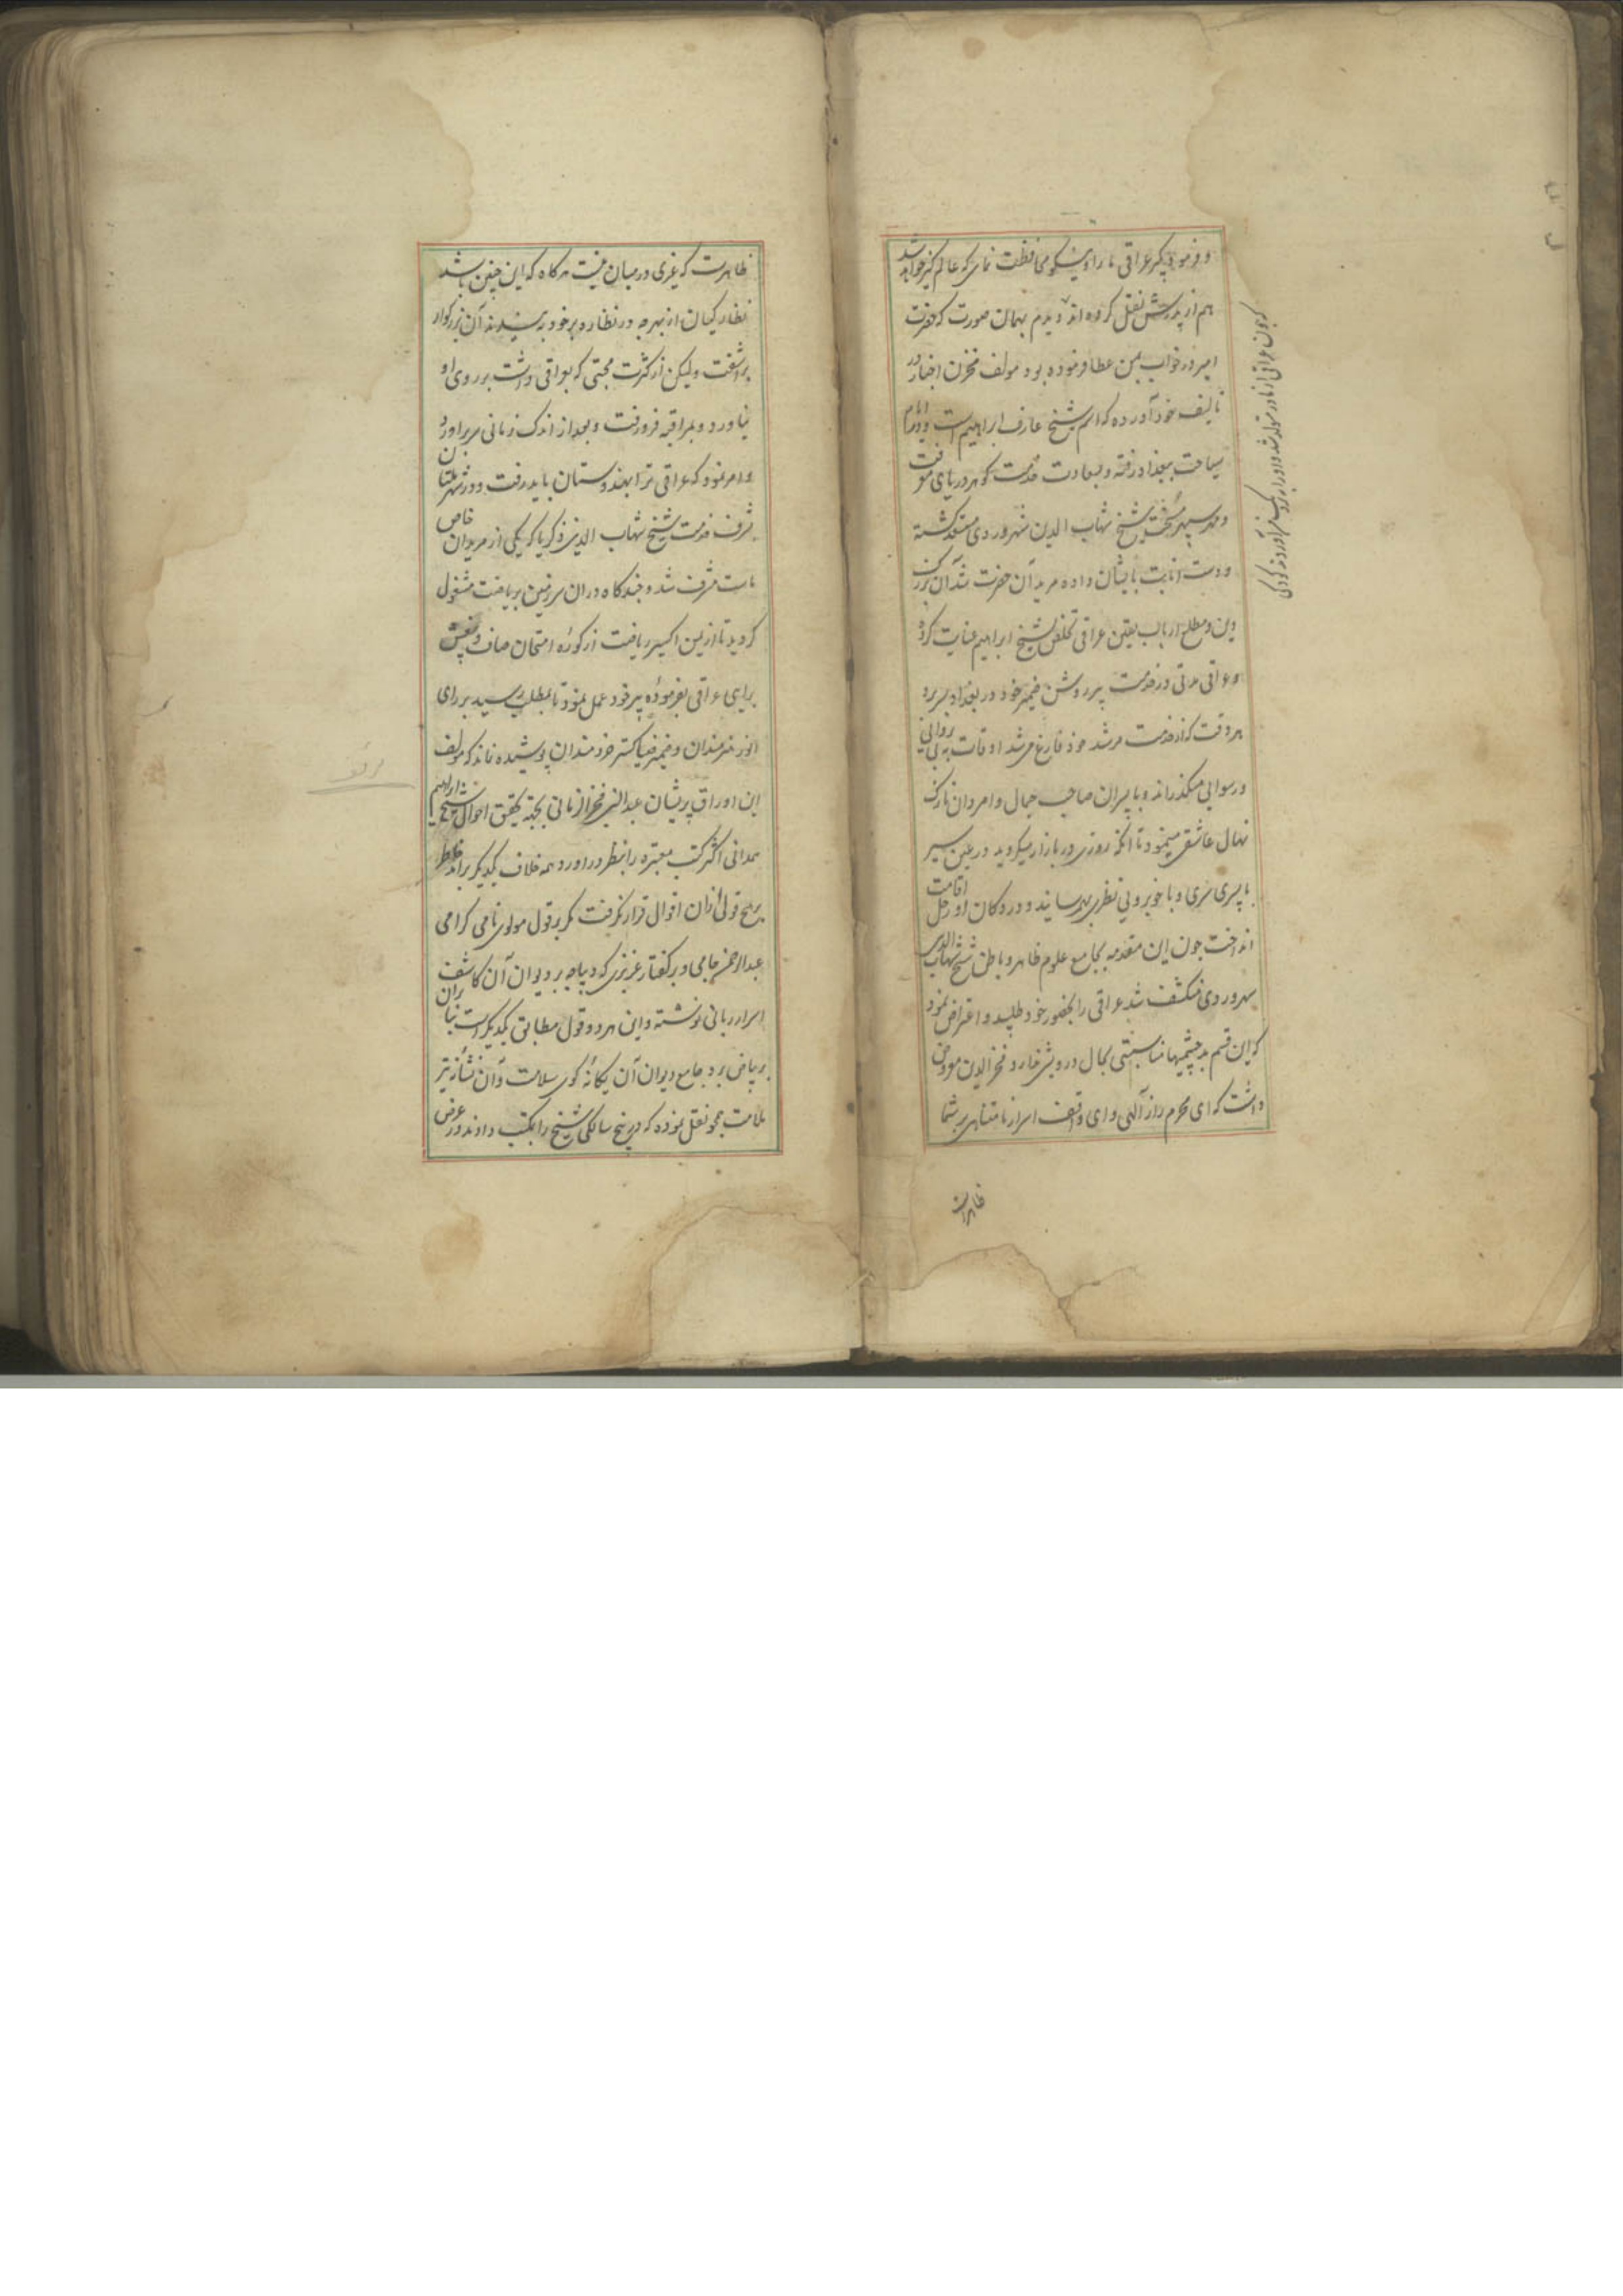 و فرمود بکیر عراقی ما را و نیکو محافظت نمای که عالم گیر خواهد شد
هم از پدرش نقل کرده‌اند دیدم بهمان صورت که حضرت
امیر در خواب بمن عطا فرموده بود مولف مخزن اخبار در
تالیف خود آورده که اسم شیخ عارف ابراهیم است و در ایام
سیاحت ببغداد رفته و بسعادت خدمت گوهر دریای معرفت
شیخ شهاب الدین سهروردی مستعد گشته
و دست انابت بایشان داده مرید آن حضرت شد آن بزرک
دین و مطلع ارباب یقین عراقی تخلص بشیخ ابراهیم عنایت کرد
و عراقی مدتی در خدمت پیر روشن ضمیر خود در بغداد بسر برد
هر وقت که از خدمت مرشد خود فارغ میشد اوقات به بی‌پروایی
و رسوایی میگذراند و با پسران صاحب جمال و امردان نازک
نهال عاشقی مینمود تا آنکه روزی در بازار میگردید در عین سیر
با پسری سری و با خوبرویی نظری بهم رسانید و در دکان او رحل اقامت
انداخت چون این مقدمه بجامع علوم ظاهر و باطن شیخ شهاب الدین
سهروردی منکشف شد عراقی را بحضور خود طلبید و اعتراض نمود
که این قسم بد چشمیها مناسبتی بحال درویش ندارد فخر الدین معروض
داشت که ای محرم راز الهی و ای واقف اسرار نامتناهی بر شما
که چون عراقی از مادر متولد شد و او را نزد
ظاهرست
ظاهرست که غیری در میان نیست هرگاه که این چنین باشد
نظارگیان از بهر چه در نظاره بر خود به بندند آن بزرگوار
برآشفت ولیکن از کثرت محبتی که بعراقی داشت بر روی او
نیاورد و بمراقبه فرو رفت و بعد از اندک زمانی سر برآورد
و امر نمود که عراقی ترا بهندوستان باید رفت و در شهر ملتان
بشرف خدمت شیخ شهاب الدین زکریا که یکی از مریدان خاص
ماست مشرف شد و چندگاه در آن سرزمین بریاضت مشغول
گردید تا ازین اکسیر ریاضت از کوره امتحان صاف و بیغش
برایی عراقی بفرموده پیر خود عمل نمود تا بمطلب رسید بر رای
انور هنرمندان و ضمیر ضیاگستر خردمندان پوشیده نماند که مولف
این اوراق پریشان عبدالنبی فخر الزمانی بجهة تحقیق احوال شیخ ابراهیم
همدانی اکثر کتب معتبره را بنظر در آورد همه خلاف یکدیگر برآمد خاطر
بهیچ قولی از آن اقوال قرار نگرفت مگر بر قول مولوی نامی گرامی
عبدالرحمن جامی و بر گفتار عزیزی که دیباچه بر دیوان آن کاشف
اسرار ربانی نوشته و این هر دو قول مطابق یکدیگر است بنا بران
بر بیاض برد جامع دیوان آن یگانه کوی سلامت و آن نشانه تیر
ملامت نقل نموده که در پنج سالگی شیخ را بمکتب دادند و در عرض